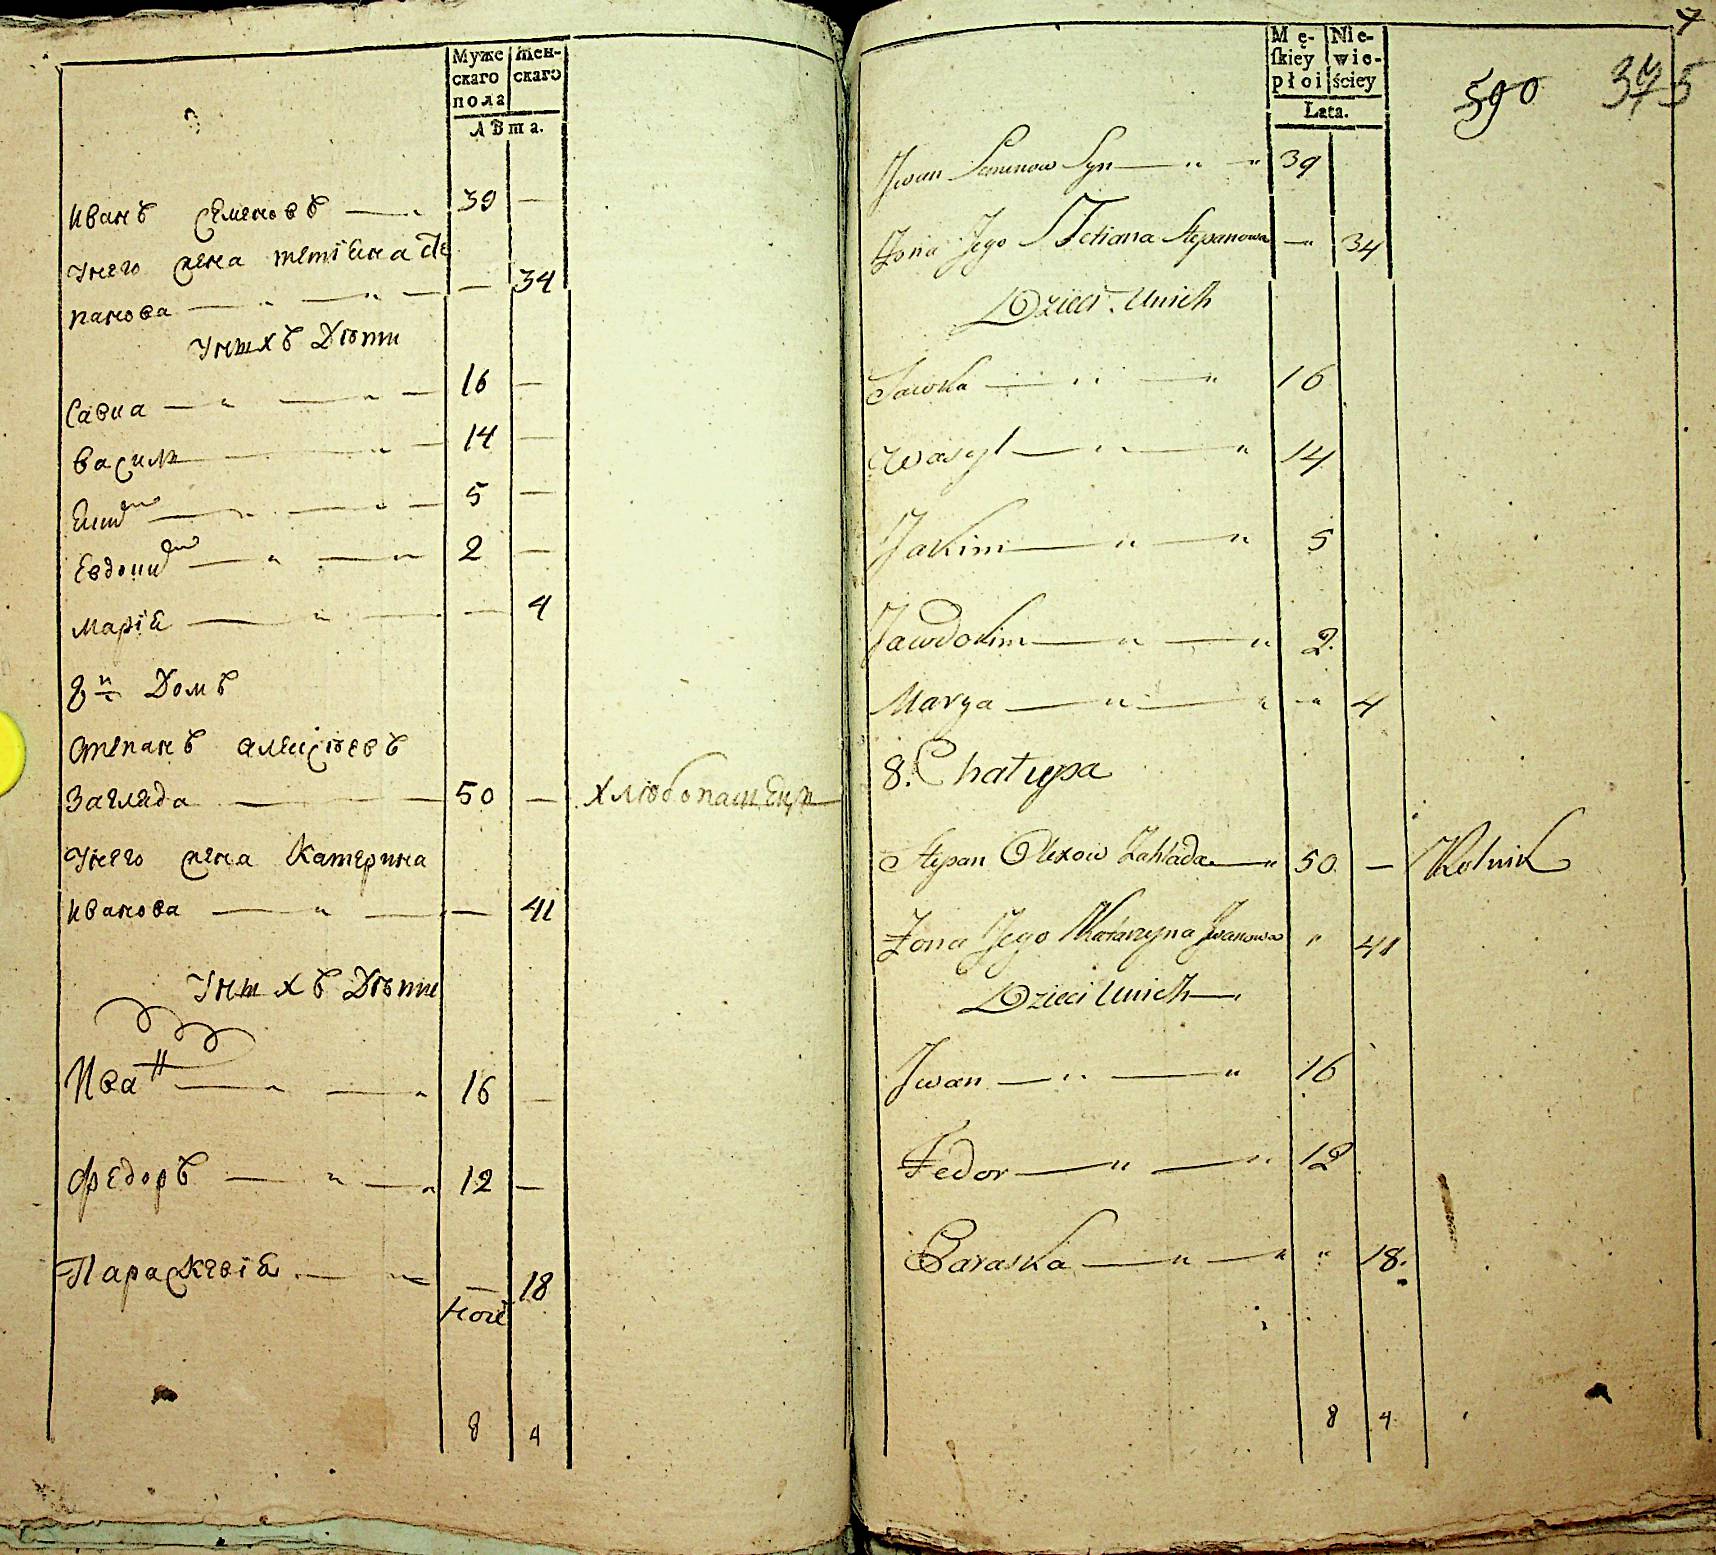 Муже
скаго
пола
Жен-
скаго
Лѣта.
Иванъ Семеновъ 39 —
Унего жена Тетіяна Сте
панова — 34
Унихъ Дѣти
Савка 16 —
Василь 14 —
Еким 5 —
Евдоким 2 —
Марія — 4
8й Домъ
Степанъ Алексѣевъ
Загляда 50 — Хлѣбопашецъ
Унего жена Катерина
Иванова — 41
Унихъ Дѣти
Иван 16 —
Федоръ 12 —
Параскевія — 18
8 4
7
Mę-
ſkiey
płci
Nie-
wie-
ściey
Lata.
590
375
Jwan Semenow Syn 39
Żona Jego Tetiana Stepanowa — 34
Dzieci Unich
Sawka 16
Wasyl 14
Jakim 5
Jawdokim 2
Marya " 4
8. Chałupa
Stepan Olexow Zahlada 50 — Rolnik
Żona Jego Katarzyna Jwanowa " 41
Dzieci Unich
Jwan 16
Fedor 12
Paraska " 18.
8 4